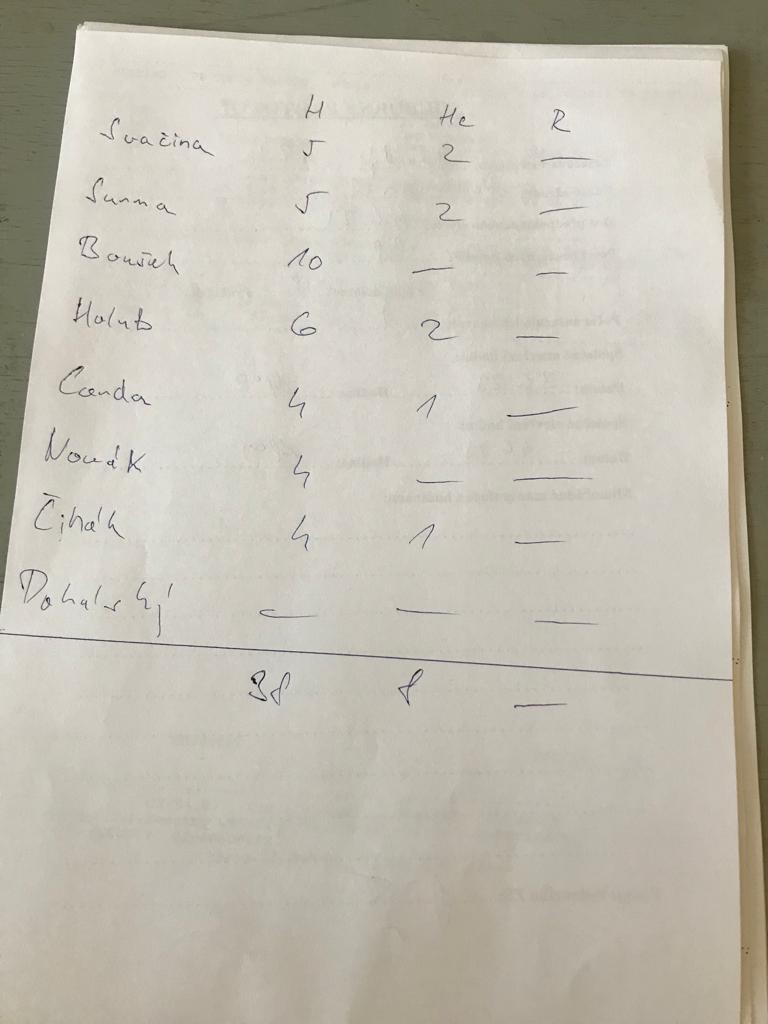 H He R
Svačina 5 2 —
Sunna 5 2 —
Boušek 10 — —
Holub 6 2 —
Canda 4 1 —
Novák 4 — —
Čihák 4 1 —
Dohalský — — —
38 8 —